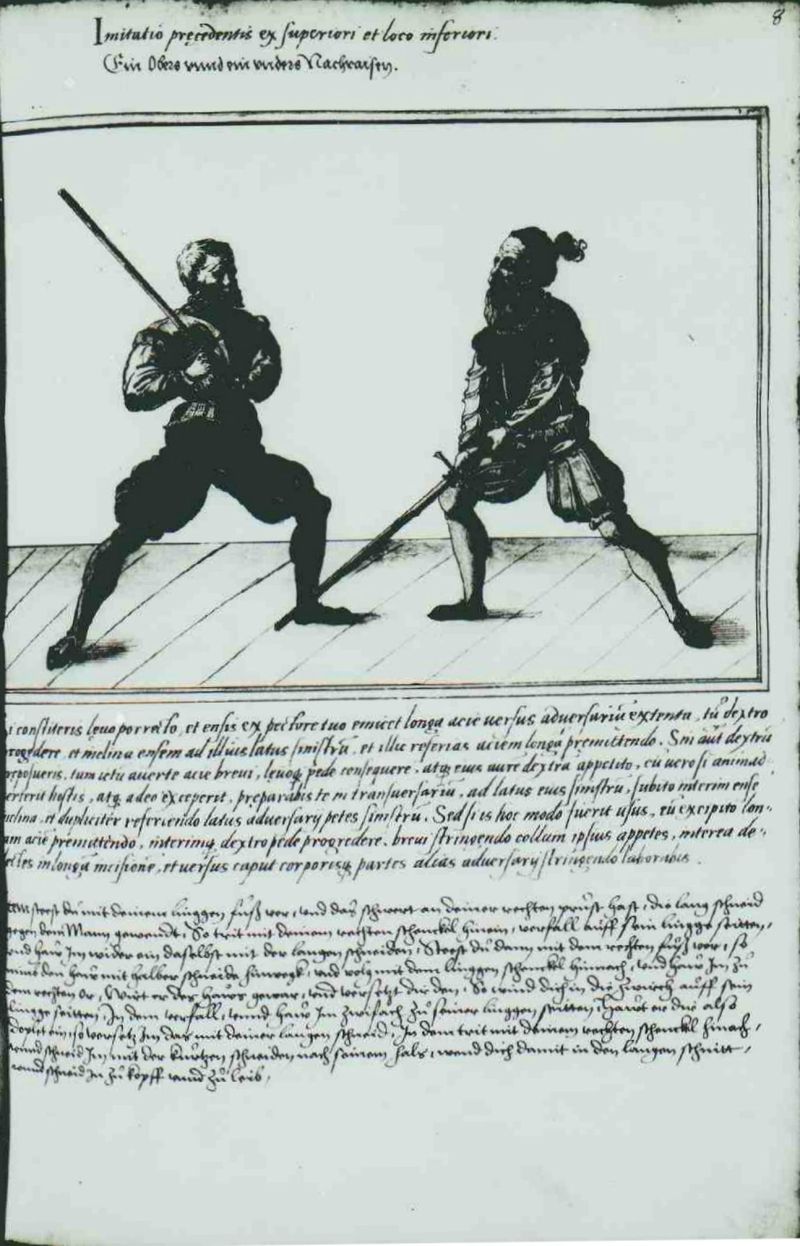 8
Imitatio precedentis ex superiori et loco inferiori.
Ein Obers vnnd ein vnders Nachraisen.
constiteris levo porrecto, et ensis ex pectore tuo emicet longa acie versus adversariũ extenta, tũ dextro
progredere et inclina ensem ad illius latus sinistrũ, et illic referias aciem longã premittendo. Sin aũt dextrũ
preposueris, tum ictũ averte acie brevi, levoq pede consequere, atq eius aure dextra appetito, cũ vero si animad
verterit hostis, atq adeo exceperit, preparabis te in transversariũ, ad latus eius sinistrũ, subito interim ense
inclina, et dupliciter referiendo latus adversarij petes sinistrũ. Sed si is hoc modo fuerit usus, tũ excipito lon-
am acie premittendo, interimq dextro pede progredere, brevi stringendo collum ipsius appetes, interea de-
longã incisione, et versus caput corporisq partes alias adversarij stringendo laborabis.
steest dũ mit deinem linggen fuß vor, vnd das schwert an deiner rechten prũst hast, die lang schneid
gegen dem Mann gewendt, So trit mit deinem rechten schenckel hinein, verfall auff sein lingge seitten,
vnd haw Im wider ein daselbst mit der langen schneiden, Steest dũ dann mit dem rechten fuß vor, so
nim den haw mit halber schneide hinwegk, vnd volg mit dem linggen schenckl hinnach, vnnd haw Im zũ
dem rechten Or, Wirt er des haws gewar, vnd versetzt dir den, So wind dich in die zwirch auff sein
lingge seitten, In dem verfall, vnnd haw Im zwifach zũ seiner linggen seitten, Hawt er dir also
ein, so versetz Im das mit deiner langen schneid, In dem trit mit deinem rechten schenckel hinach,
vnnd schneid Im mit der kurtzen schneiden nach seinem hals, wend dich damit in den langen schnitt,
vnnd schneid In zũ kopff vnnd zũ leib,